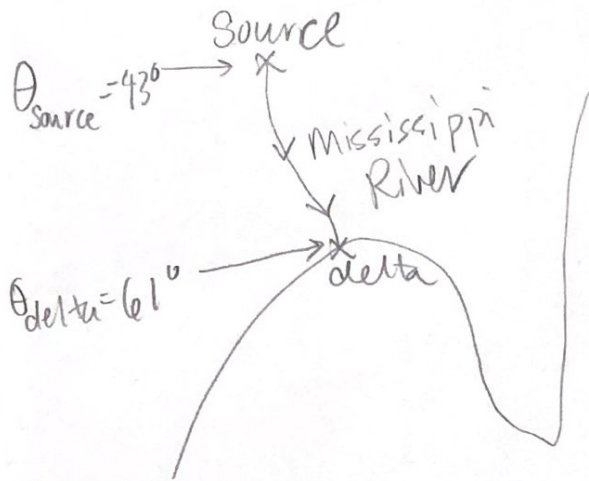 Source
θsource = 43⁰
Mississippi
River
delta
θdelta = 61⁰